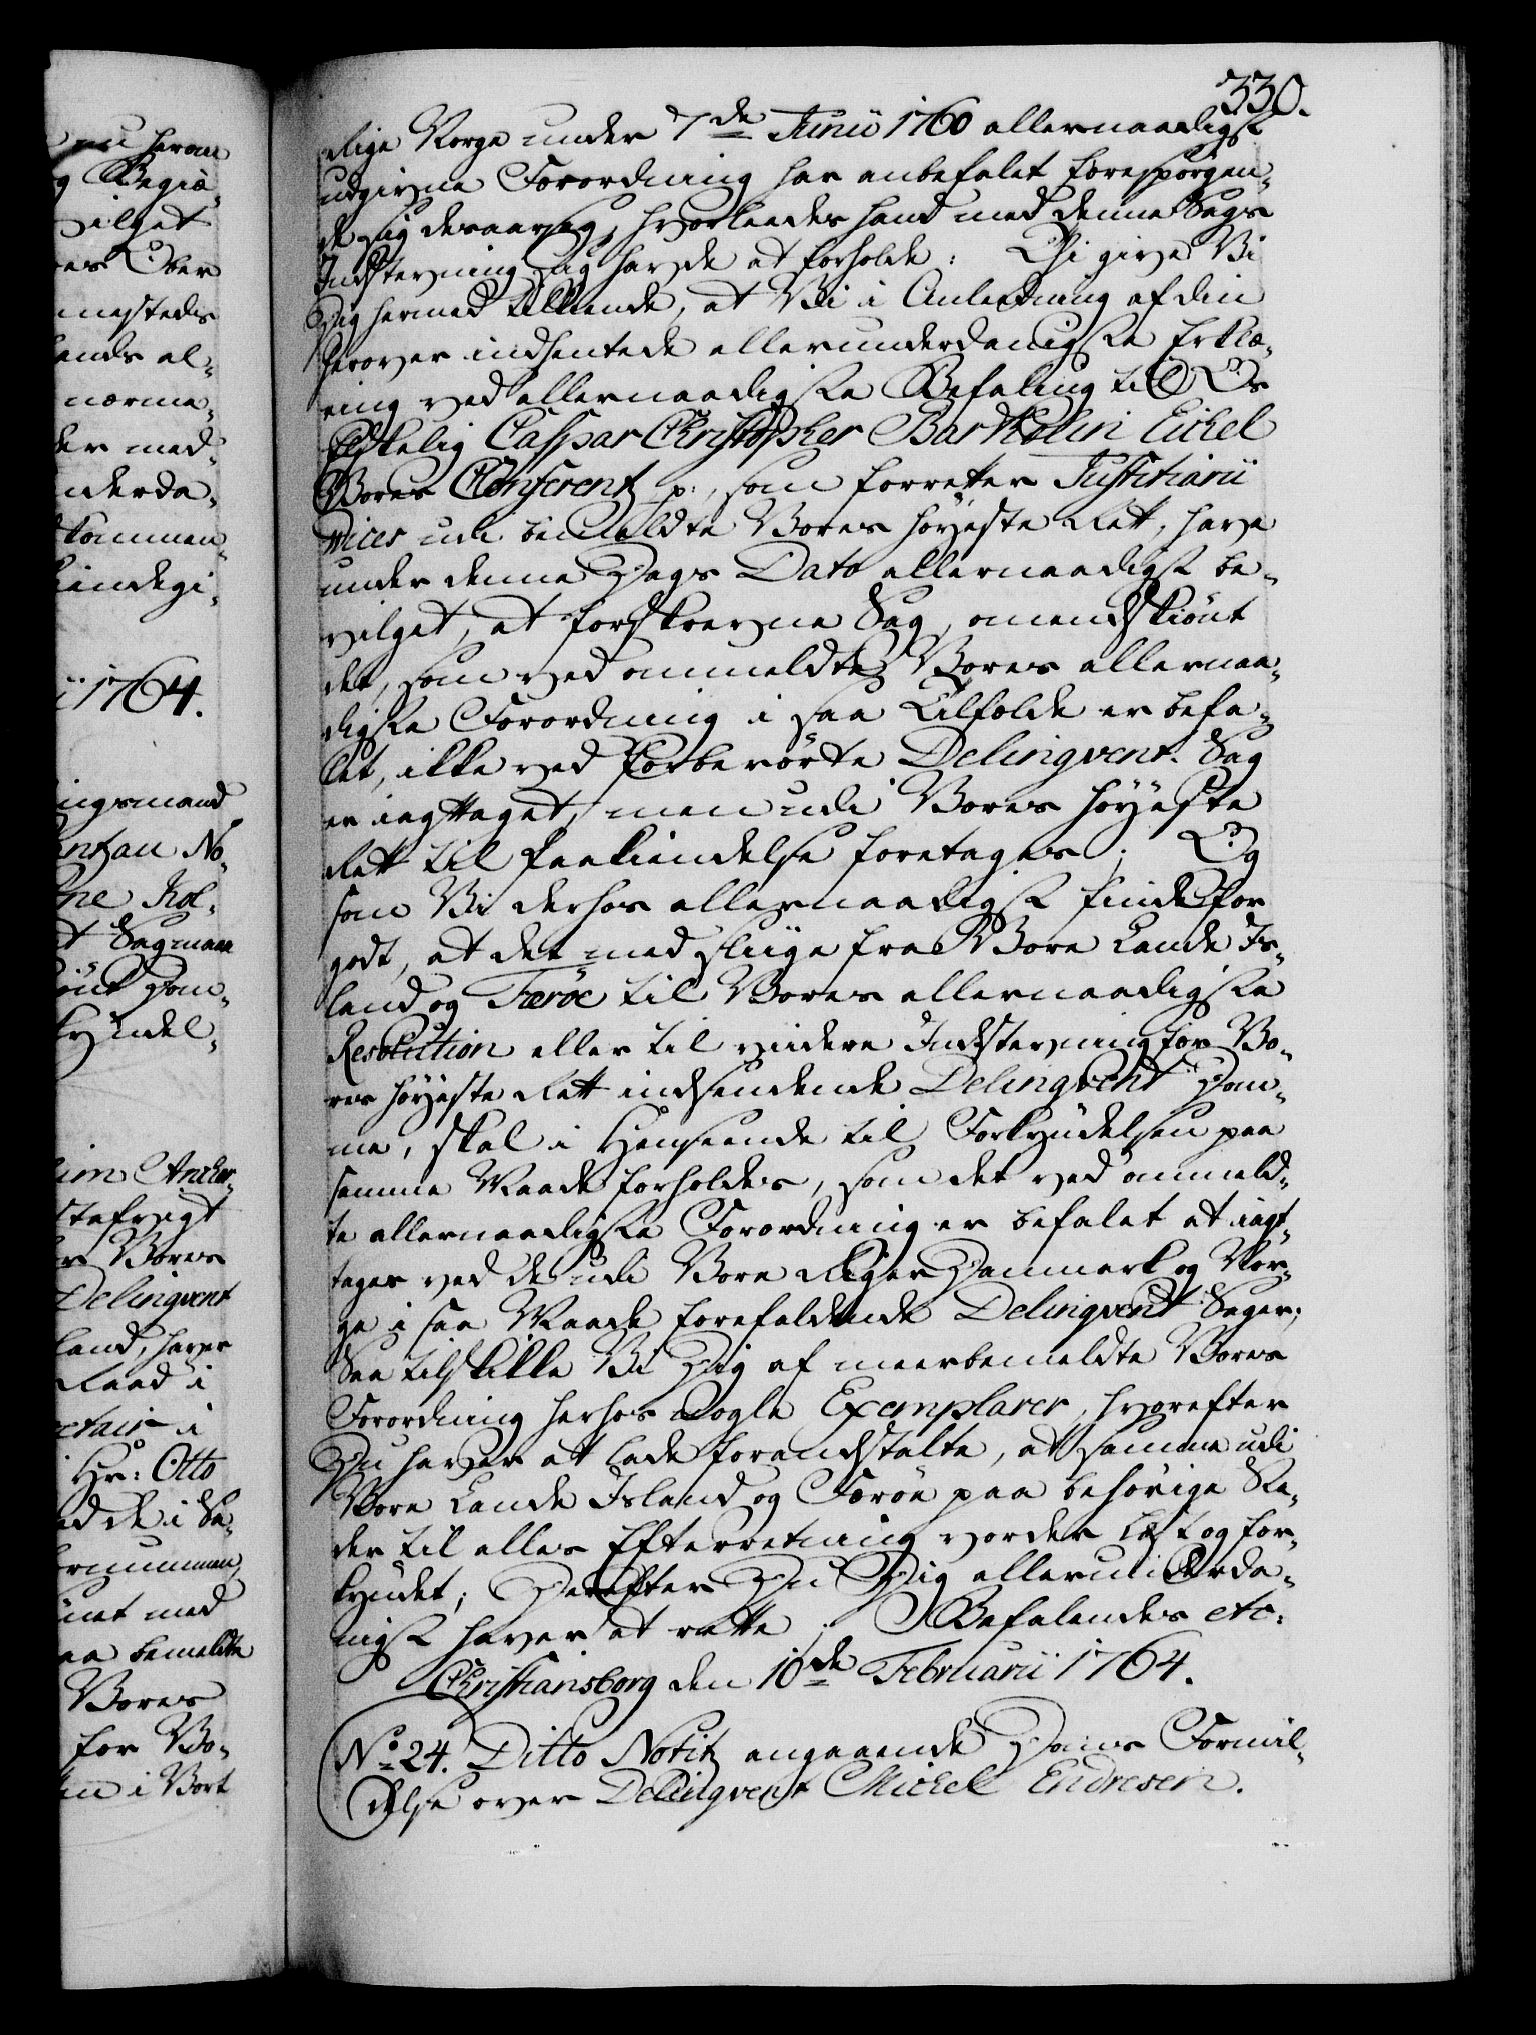 330.
Rige Norge under 7de Junii 1760 allernaadigst
udgivne Forordning har anbefalet forespørgen-
de sig desaarsag, hvorleedes hand med denne Sags
Indstevning sig havde at forholde: Thi give Vi
Dig hermed tilkiende, at Vi i Anledning af din
herover indhentede allerunderdanigste Erklæ-
ring ved allernaadigste Befaling til Os
Elskelig Caspar Christopher Bartholin Eichel
Vores Conferentz p:, som forretter Justitiarii
vices udi bemeldte Vores Høyeste Rett, have
under denne Dags Dato allernaadigst be-
vilget, at forskrevne Sag, omendskiønt
det, som ved ommeldte Vores allernaa-
digste Forordning i saa Tilfælde er befa-
let, ikke ved forberørte Delinqvent-Sag
er iagttaget, men udi Vores Høyeste
Rett til Paakiendelse foretages; Og
som Vi derhos allernaadigst finde for
godt, at det med slige fra Vore Lande Is-
land og Færöe til Vores allernaadigste
Resolution eller til viidere Indstevning for Vo-
res Høyeste Rett indsendende Delinqvent Dom-
me, skal i Henseende til Forkyndelsen paa
samme Maade forholdes, som det ved ommeld-
te allernaadigste Forordning er befalet at iagt-
tages ved de udi Vore Riger Danmark og Nor-
ge i saa Maade forefaldende Delinqvent Sager;
Saa tilskikke Vi Dig af meerbemeldte Vores
Forordning herhos Nogle Exemplarer, hvorefter
Du haver at lade foranstalte, at samme udi
Vore Lande Island og Færøe paa behørige Ste-
der til alles Efterretning vorder læst og for-
kyndet; Derefter Du Dig allerunderda-
nigst haver at rette; Befalendes etc:
Christiansborg den 10de Februarii 1764.
No 24. Ditto Notitz angaaende Doms Formil-
delse over Delinqvent Michel Endresen.